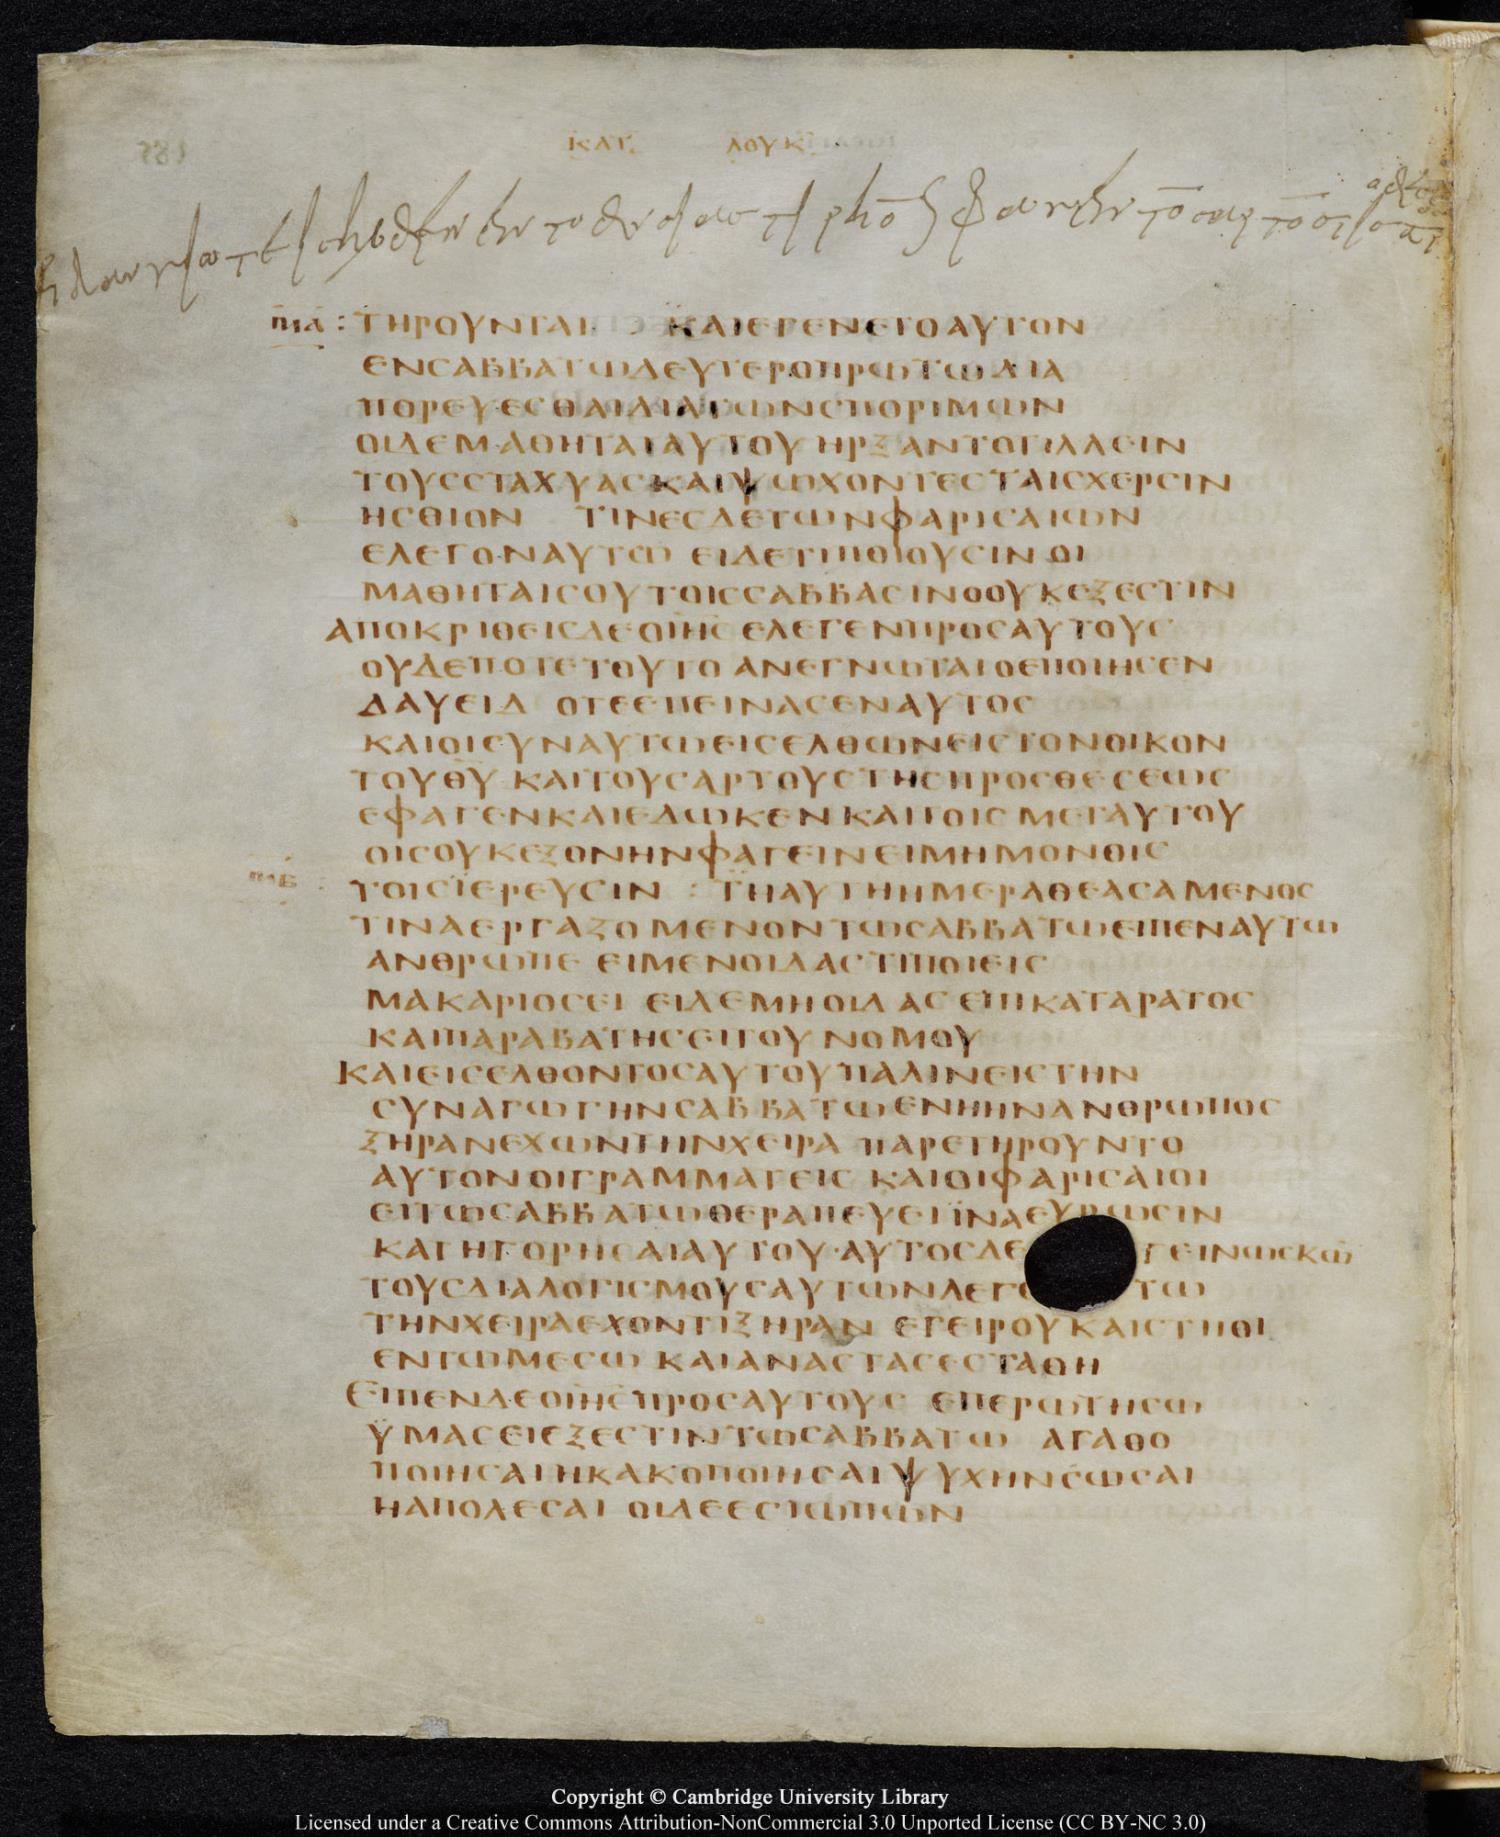 ΚΑΤ ΛΟΥΚ
ΤΗΡΟΥΝΤΑΙ ΚΑΙΕΓΕΝΕΤΟΑΥΤΟΝ
ΕΝΣΑΒΒΑΤΩΔΕΥΤΕΡΟΠΡΩΤΩΔΙΑ
ΠΟΡΕΥΕΣΘΑΙΔΙΑΤΩΝΣΠΟΡΙΜΩΝ
ΟΙΔΕΜΑΘΗΤΑΙΑΥΤΟΥΗΡΞΑΝΤΟΤΙΛΛΕΙΝ
ΤΟΥΣΣΤΑΧΥΑΣΚΑΙΨΩΧΟΝΤΕΣΤΑΙΣΧΕΡΣΙΝ
ΗΣΘΙΟΝ ΤΙΝΕΣΔΕΤΩΝΦΑΡΙΣΑΙΩΝ
ΕΛΕΓΟΝΑΥΤΩ ΕΙΔΕΤΙΠΟΙΟΥΣΙΝΟΙ
ΜΑΘΗΤΑΙΣΟΥΤΟΙΣΣΑΒΒΑΣΙΝΟΟΥΚΕΞΕΣΤΙΝ
ΑΠΟΚΡΙΘΕΙΣΔΕΟΙΗΣ ΕΛΕΓΕΝΠΡΟΣΑΥΤΟΥΣ
ΟΥΔΕΠΟΤΕΤΟΥΤΟ ΑΝΕΓΝΩΤΑΙΟΕΠΟΙΗΣΕΝ
ΔΑΥΕΙΔ ΟΤΕΕΠΕΙΝΑΣΕΝΑΥΤΟΣ
ΚΑΙΟΙΣΥΝΑΥΤΩΕΙΣΕΛΘΩΝΕΙΣΤΟΝΟΙΚΟΝ
ΤΟΥΘΥ ΚΑΙΤΟΥΣΑΡΤΟΥΣΤΗΣΠΡΟΣΘΕΣΕΩΣ
ΕΦΑΓΕΝΚΑΙΕΔΩΚΕΝΚΑΙΤΟΙΣ ΜΕΤΑΥΤΟΥ
ΟΙΣΟΥΚΕΞΟΝΗΝΦΑΓΕΙΝΕΙΜΗΜΟΝΟΙΣ
ΤΟΙΣΪΕΡΕΥΣΙΝ : ΤΗΑΥΤΗΗΜΕΡΑΘΕΑΣΑΜΕΝΟΣ
ΤΙΝΑΕΡΓΑΖΟΜΕΝΟΝΤΩΣΑΒΒΑΤΩΕΙΠΕΝΑΥΤΩ
ΑΝΘΡΩΠΕ ΕΙΜΕΝΟΙΔΑΣΤΙΠΟΙΕΙΣ
ΜΑΚΑΡΙΟΣΕΙ ΕΙΔΕΜΗΟΙΔΑΣ ΕΠΙΚΑΤΑΡΑΤΟΣ
ΚΑΙΠΑΡΑΒΑΤΗΣΕΙΤΟΥΝΟΜΟΥ
ΚΑΙΕΙΣΕΛΘΟΝΤΟΣΑΥΤΟΥΠΑΛΙΝΕΙΣΤΗΝ
ΣΥΝΑΓΩΓΗΝΣΑΒΒΑΤΩΕΝΗΗΝΑΝΘΡΩΠΟΣ
ΞΗΡΑΝΕΧΩΝΤΗΝΧΕΙΡΑ ΠΑΡΕΤΗΡΟΥΝΤΟ
ΑΥΤΟΝΟΙΓΡΑΜΜΑΤΕΙΣ ΚΑΙΟΙΦΑΡΙΣΑΙΟΙ
ΕΙΤΩΣΑΒΒΑΤΩΘΕΡΑΠΕΥΕΙΪΝΑΕΥΡΩΣΙΝ
ΚΑΤΗΓΟΡΗΣΑΙΑΥΤΟΥ·ΑΥΤΟΣΔΕ ΓΕΙΝΩΣΚΩ̄
ΤΟΥΣΔΙΑΛΟΓΙΣΜΟΥΣΑΥΤΩΝΛΕΓΕ ΤΩ
ΤΗΝΧΕΙΡΑΕΧΟΝΤΙΞΗΡΑΝ ΕΓΕΙΡΟΥΚΑΙΣΤΗΘΙ
ΕΝΤΩΜΕΣΩ ΚΑΙΑΝΑΣΤΑΣΕΣΤΑΘΗ
ΕΙΠΕΝΔΕΟΙΗΣΠΡΟΣΑΥΤΟΥΣ ΕΠΕΡΩΤΗΣΩ
ΫΜΑΣΕΙΕΞΕΣΤΙΝΤΩΣΑΒΒΑΤΩ ΑΓΑΘΟ
ΠΟΙΗΣΑΙΗΚΑΚΟΠΟΙΗΣΑΙΨΥΧΗΝΣΩΣΑΙ
ΗΑΠΟΛΕΣΑΙ ΟΙΔΕΕΣΙΩΠΩΝ
Copyright © Cambridge University Library
Licensed under a Creative Commons Attribution-NonCommercial 3.0 Unported License (CC BY-NC 3.0)